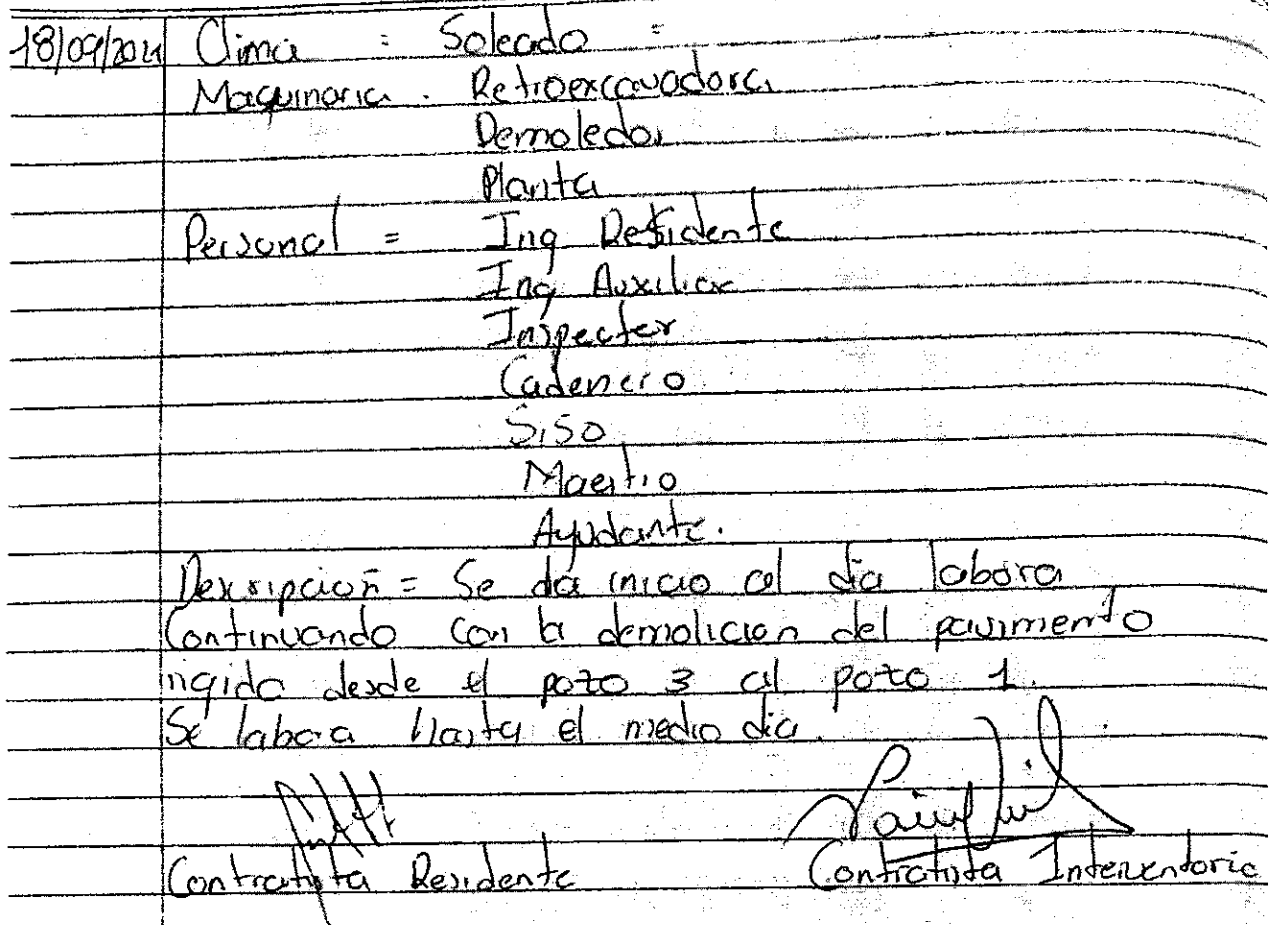 18/09/2021 Clima : Soleado =
Maquinaria . Retroexcavadora
Demoledor
Planta
Personal = Ing Residente
Ing Auxiliar
Inspector
Cadenero
Siso
Maestro
Ayudante.
Descripción = Se da inicio al dia labora
Continuando con la demolicion del pavimento
rigido desde el pozo 3 al pozo 1.
Se labora hasta el medio dia.
Contratista Residente Contratista Interventoria